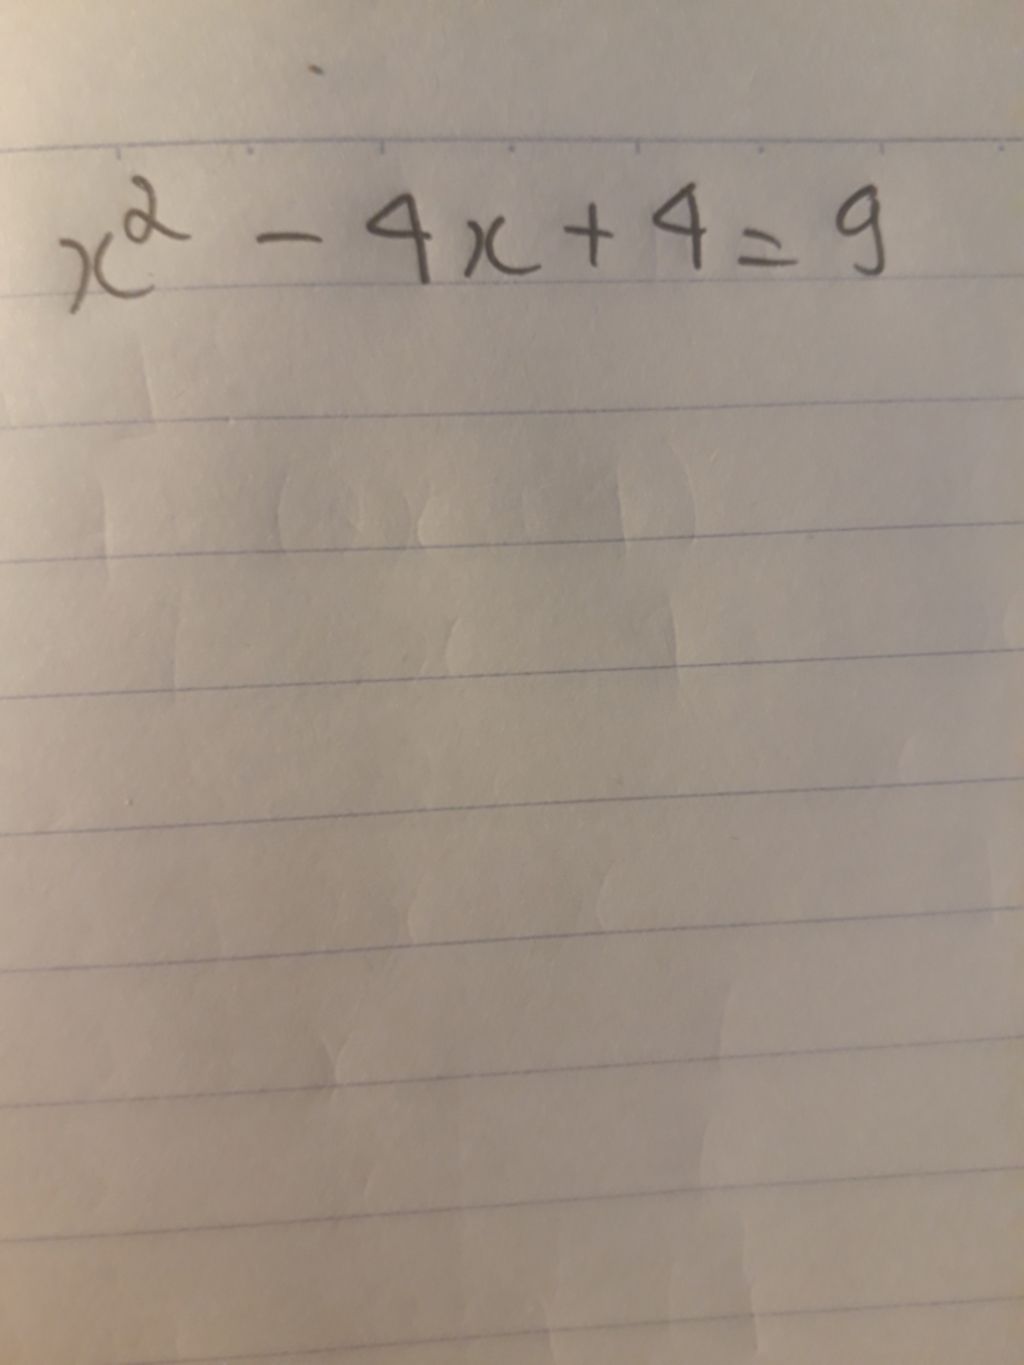 x² - 4x + 4 = 9